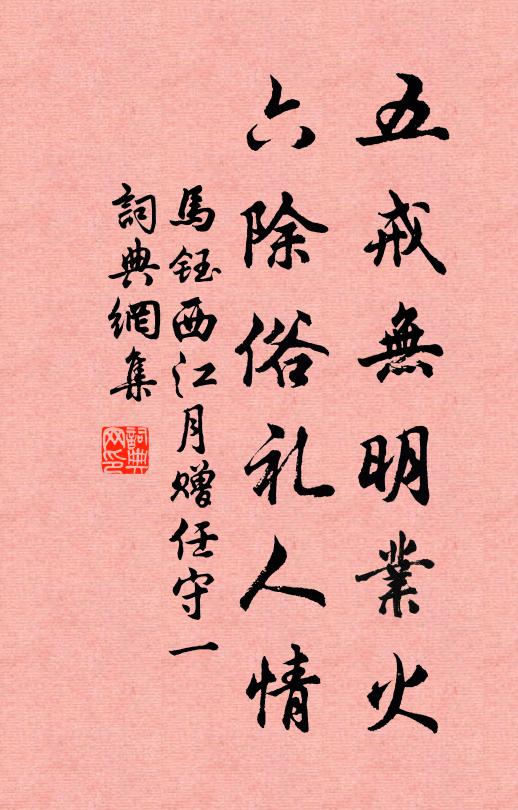 五戒無明業火
六除俗礼人情
馬鈺西江月赠任守一
詞典網集
詞典
网印